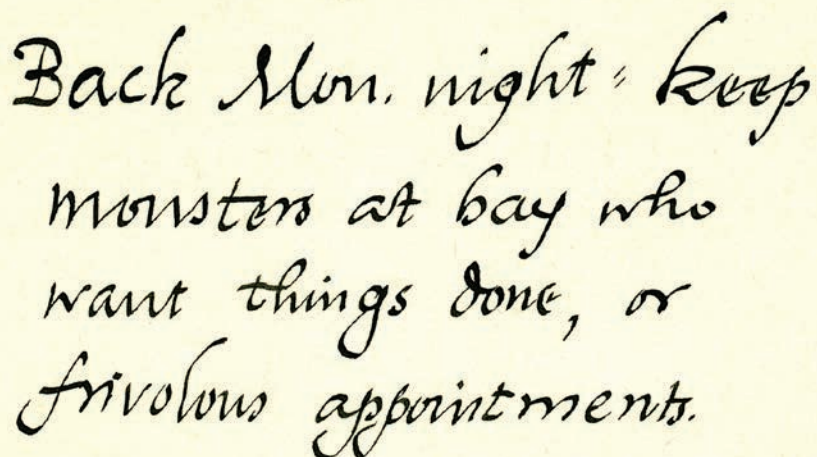 Back Mon. night = keep
monsters at bay who
want things done, or
frivolous appointments.